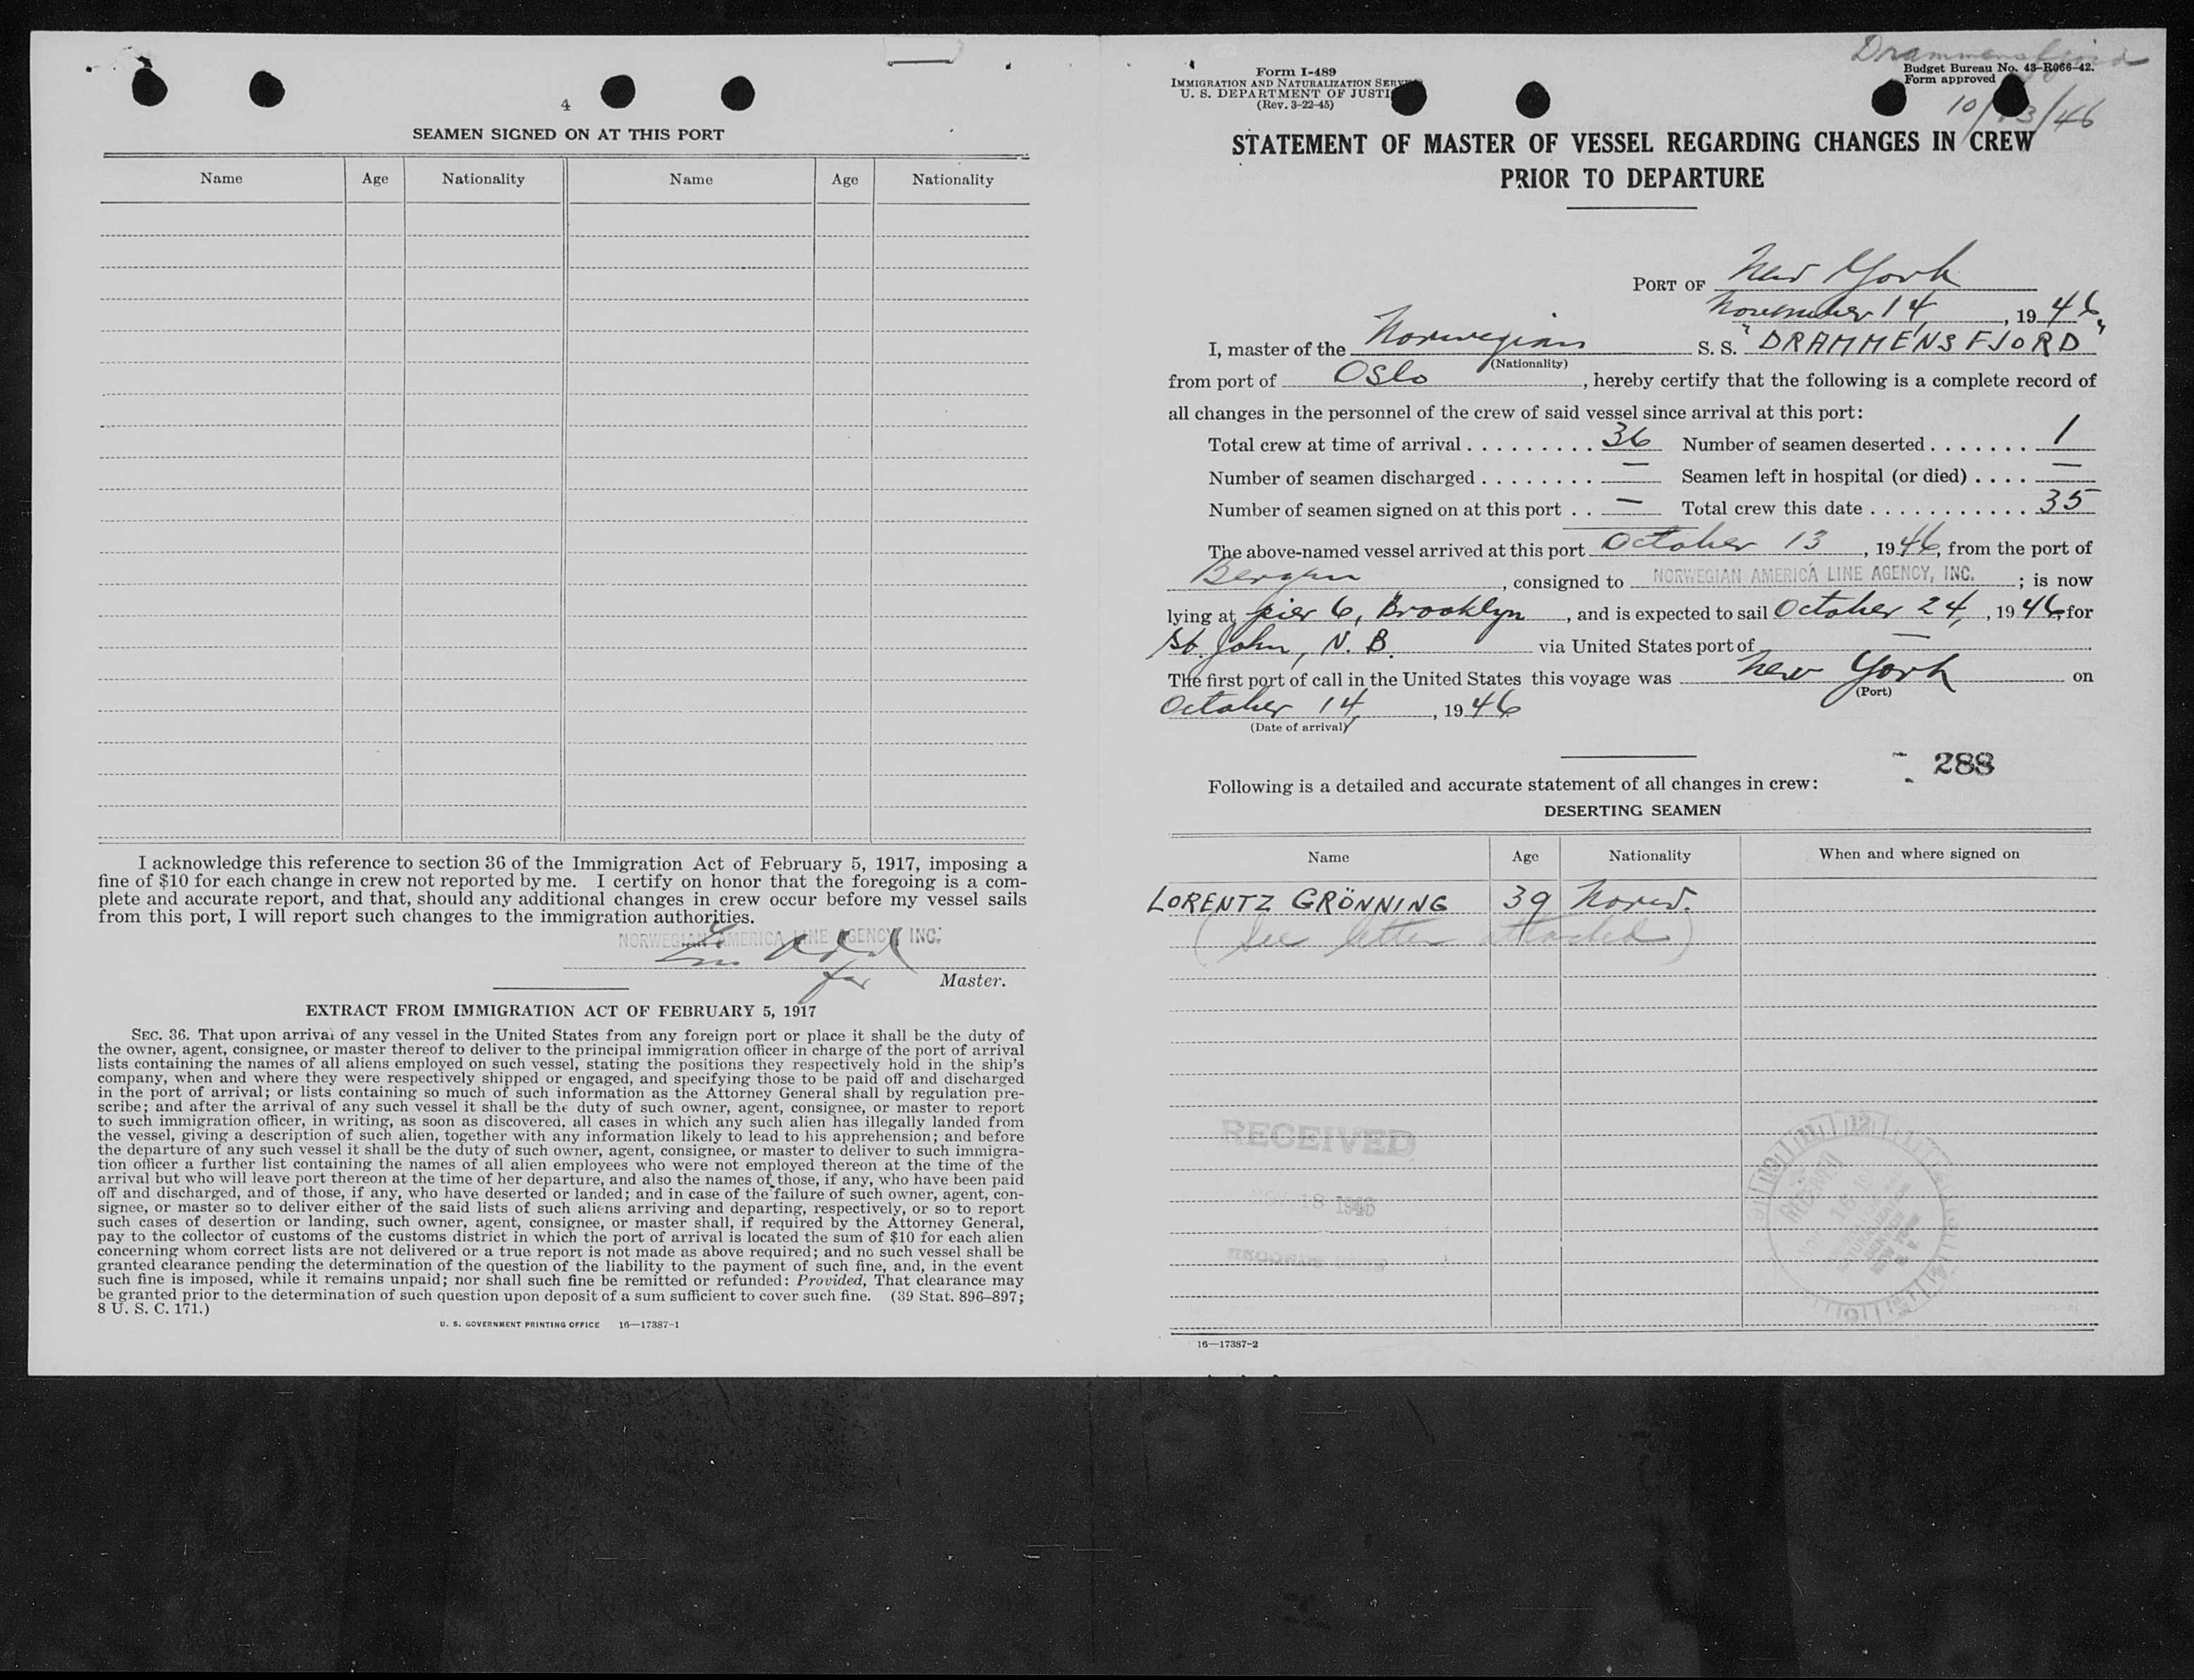 4
SEAMEN SIGNED ON AT THIS PORT
Name Age Nationality Name Age Nationality
I acknowledge this reference to section 36 of the Immigration Act of February 5, 1917, imposing a
fine of $10 for each change in crew not reported by me. I certify on honor that the foregoing is a com-
plete and accurate report, and that, should any additional changes in crew occur before my vessel sails
from this port, I will report such changes to the immigration authorities.
NORWEGIAN AMERICA LINE AGENCY, INC.
for Master.
EXTRACT FROM IMMIGRATION ACT OF FEBRUARY 5, 1917
SEC. 36. That upon arrival of any vessel in the United States from any foreign port or place it shall be the duty of
the owner, agent, consignee, or master thereof to deliver to the principal immigration officer in charge of the port of arrival
lists containing the names of all aliens employed on such vessel, stating the positions they respectively hold in the ship's
company, when and where they were respectively shipped or engaged, and specifying those to be paid off and discharged
in the port of arrival; or lists containing so much of such information as the Attorney General shall by regulation pre-
scribe; and after the arrival of any such vessel it shall be the duty of such owner, agent, consignee, or master to report
to such immigration officer, in writing, as soon as discovered, all cases in which any such alien has illegally landed from
the vessel, giving a description of such alien, together with any information likely to lead to his apprehension; and before
the departure of any such vessel it shall be the duty of such owner, agent, consignee, or master to deliver to such immigra-
tion officer a further list containing the names of all alien employees who were not employed thereon at the time of the
arrival but who will leave port thereon at the time of her departure, and also the names of those, if any, who have been paid
off and discharged, and of those, if any, who have deserted or landed; and in case of the failure of such owner, agent, con-
signee, or master so to deliver either of the said lists of such aliens arriving and departing, respectively, or so to report
such cases of desertion or landing, such owner, agent, consignee, or master shall, if required by the Attorney General,
pay to the collector of customs of the customs district in which the port of arrival is located the sum of $10 for each alien
concerning whom correct lists are not delivered or a true report is not made as above required; and no such vessel shall be
granted clearance pending the determination of the question of the liability to the payment of such fine, and, in the event
such fine is imposed, while it remains unpaid; nor shall such fine be remitted or refunded: Provided, That clearance may
be granted prior to the determination of such question upon deposit of a sum sufficient to cover such fine. (39 Stat. 896–897;
8 U. S. C. 171.)
U. S. GOVERNMENT PRINTING OFFICE 16—17387-1
Drammensfjord
Form I-489
IMMIGRATION AND NATURALIZATION SERV
U. S. DEPARTMENT OF JUSTI
(Rev. 3-22-45)
Budget Bureau No. 43-R066-42.
Form approved
10/13/46
STATEMENT OF MASTER OF VESSEL REGARDING CHANGES IN CREW
PRIOR TO DEPARTURE
PORT OF New York
November 14, 1946
I, master of the Norwegian S. S. "DRAMMENSFJORD"
(Nationality)
from port of Oslo, hereby certify that the following is a complete record of
all changes in the personnel of the crew of said vessel since arrival at this port:
Total crew at time of arrival . . . . . . . . . 36 Number of seamen deserted . . . . . . . 1
Number of seamen discharged . . . . . . . . — Seamen left in hospital (or died) . . . . —
Number of seamen signed on at this port . . — Total crew this date . . . . . . . . . . . . 35
The above-named vessel arrived at this port October 13, 1946, from the port of
Bergen, consigned to NORWEGIAN AMERICA LINE AGENCY, INC.; is now
lying at pier 6, Brooklyn, and is expected to sail October 24, 1946, for
St. John, N. B. via United States port of —
The first port of call in the United States this voyage was New York on
(Port)
October 14, 1946
(Date of arrival)
288
Following is a detailed and accurate statement of all changes in crew:
DESERTING SEAMEN
Name Age Nationality When and where signed on
LORENTZ GRÖNNING 39 Norw.
(See letter attached)
RECEIVED
18 1946
RECEIVED
16—17387-2